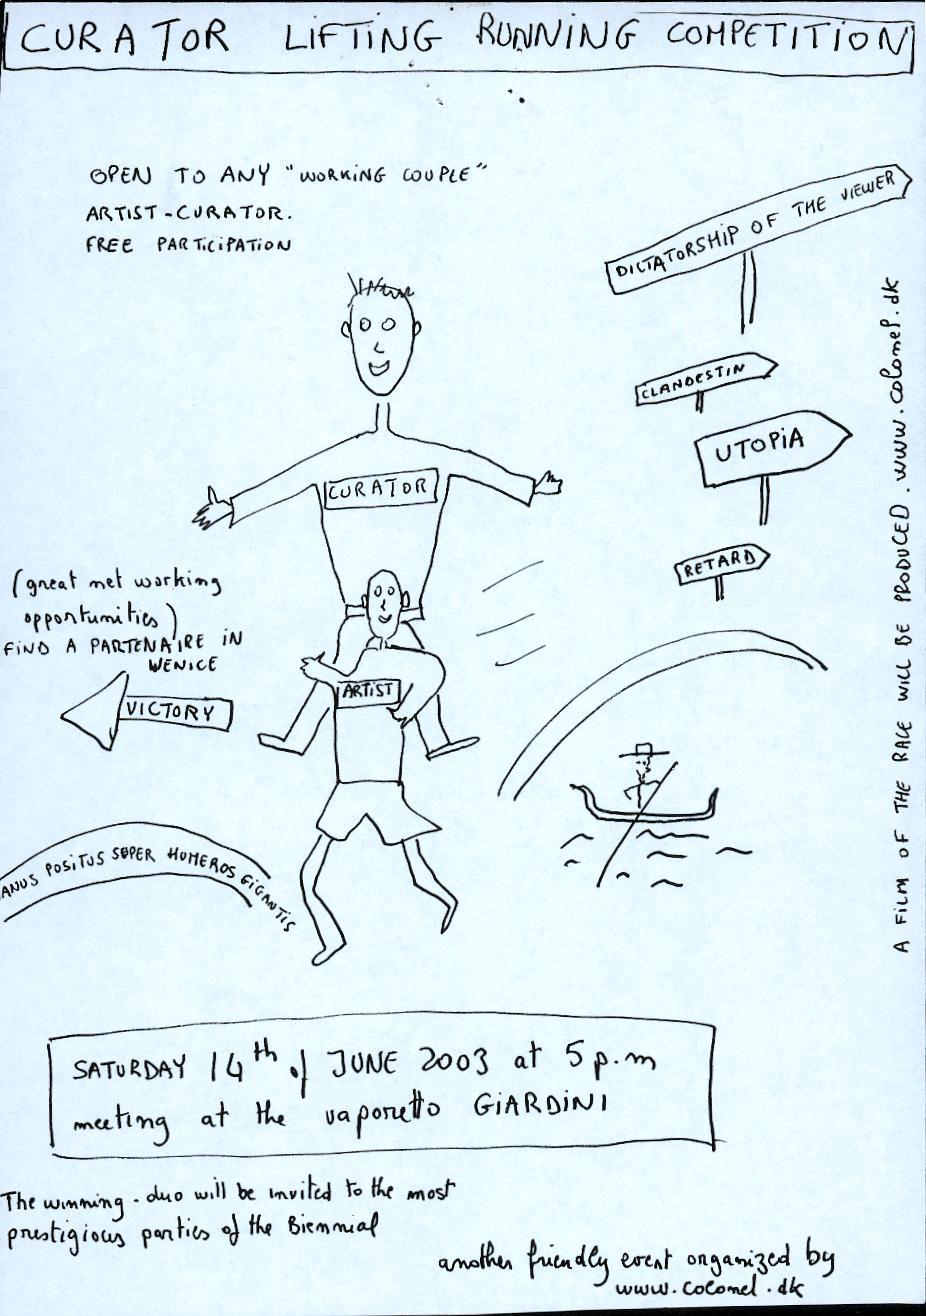 CURATOR LIFTING RUNNING COMPETITION
OPEN TO ANY "WORKING COUPLE"
ARTIST-CURATOR.
FREE PARTICIPATION
DICTATORSHIP OF THE VIEWER
CLANDESTIN
UTOPIA
RETARD
CURATOR
(great net working
opportunities)
FIND A PARTENAIRE IN
VENICE
VICTORY
ARTIST
ANUS POSITUS SUPER HUMEROS GIGANTIS
A FILM OF THE RACE WILL BE PRODUCED. www.colonel.dk
SATURDAY 14th of JUNE 2003 at 5 p.m
meeting at the vaporetto GIARDINI
The winning-duo will be invited to the most
prestigious parties of the Biennial
another friendly event organized by
www.colonel.dk